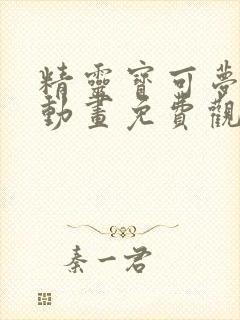 精靈寶可夢
動畫免費觀
秦一君